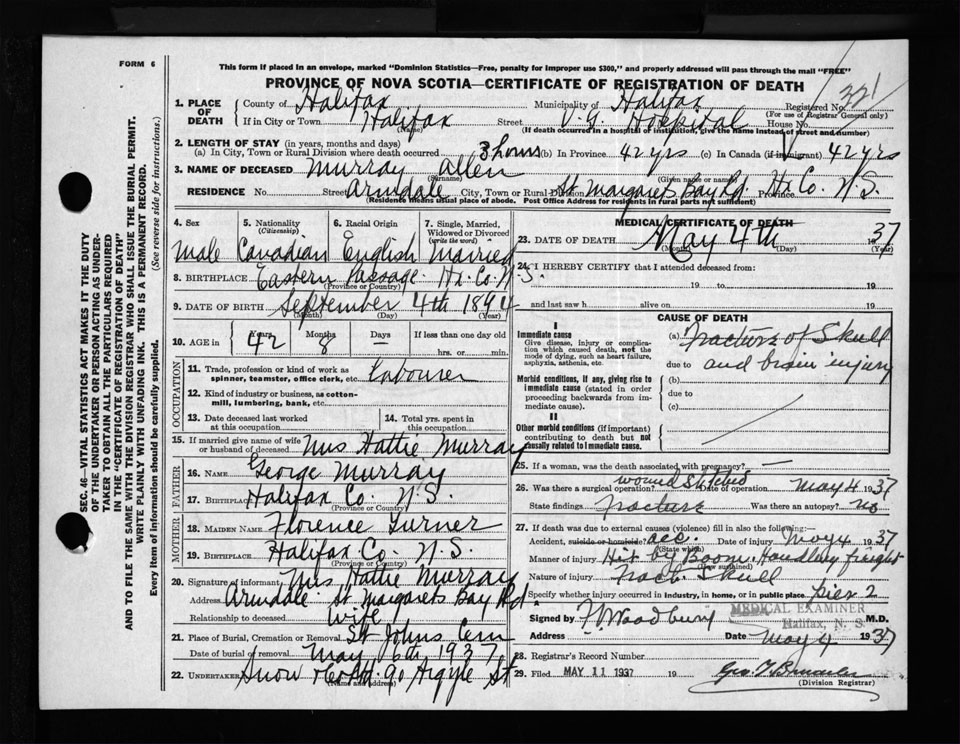 FORM 6
This form if placed in an envelope, marked "Dominion Statistics—Free, penalty for improper use $300," and properly addressed will pass through the mail "FREE"
PROVINCE OF NOVA SCOTIA—CERTIFICATE OF REGISTRATION OF DEATH
1. PLACE OF DEATH County of Halifax Municipality of Halifax Registered No. 321
(For use of Registrar General only)
If in City or Town Halifax Street V.G. Hospital House No.
(Name) (If death occurred in a hospital or institution, give the name instead of street and number)
2. LENGTH OF STAY (in years, months and days)
(a) In City, Town or Rural Division where death occurred 3 hours (b) In Province 42 yrs (c) In Canada (if immigrant) 42 yrs
3. NAME OF DECEASED Murray Allen
(Surname) (Given name or names)
RESIDENCE No. Street Armdale City, Town or Rural Division St Margarets Bay Rd. Province Hx Co. N.S.
(Residence means usual place of abode. Post Office Address for residents in rural parts not sufficient)
4. Sex 5. Nationality (Citizenship) 6. Racial Origin 7. Single, Married, Widowed or Divorced (write the word)
Male Canadian English Married
8. BIRTHPLACE Eastern Passage Hx. Co. N.S.
(Province or Country)
9. DATE OF BIRTH September 4th 1894
(Month) (Day) (Year)
10. AGE in Years 42 Months 8 Days — If less than one day old
hrs. or min.
OCCUPATION
11. Trade, profession or kind of work as spinner, teamster, office clerk, etc. Labourer
12. Kind of industry or business, as cotton-mill, lumbering, bank, etc.
13. Date deceased last worked at this occupation
14. Total yrs. spent in this occupation
15. If married give name of wife or husband of deceased Mrs Hattie Murray
FATHER
16. Name George Murray
17. Birthplace Halifax Co. N.S.
(Province or Country)
MOTHER
18. Maiden Name Florence Turner
19. Birthplace Halifax Co. N.S.
(Province or Country)
20. Signature of informant Mrs Hattie Murray
Address Armdale St Margarets Bay Rd
Relationship to deceased Wife
21. Place of Burial, Cremation or Removal St Johns Cem
Date of burial or removal May 6th 1937
22. UNDERTAKER Snow & Co Ltd. 90 Argyle St
(Name and address)
MEDICAL CERTIFICATE OF DEATH
23. DATE OF DEATH May 4th 1937
(Month) (Day)
24. I HEREBY CERTIFY that I attended deceased from:
19 to 19
and last saw h alive on 19
CAUSE OF DEATH
I
Immediate cause
Give disease, injury or complication which caused death, not the mode of dying, such as heart failure, asphyxia, asthenia, etc.
(a) Fracture of Skull
due to and brain injury
Morbid conditions, if any, giving rise to immediate cause (stated in order proceeding backwards from immediate cause).
(b)
due to
(c)
II
Other morbid conditions (if important) contributing to death but not causally related to immediate cause.
25. If a woman, was the death associated with pregnancy? —
26. Was there a surgical operation? wound stitched Date of operation May 4 1937
State findings Fracture Was there an autopsy? no
27. If death was due to external causes (violence) fill in also the following:—
Accident, suicide or homicide? acc. Date of injury May 4 1937
(State which)
Manner of injury Hit by Boom. Handling freight
(How sustained)
Nature of injury Frac. Skull
Specify whether injury occurred in industry, in home, or in public place Pier 2
Signed by F. Woodbury M.D.
MEDICAL EXAMINER
Halifax, N. S.
Address Date May 4 1937
28. Registrar's Record Number
29. Filed MAY 11 1937 19
(Division Registrar)
SEC. 46—VITAL STATISTICS ACT MAKES IT THE DUTY
OF THE UNDERTAKER OR PERSON ACTING AS UNDERTAKER TO OBTAIN ALL THE PARTICULARS REQUIRED
IN THE "CERTIFICATE OF REGISTRATION OF DEATH"
AND TO FILE THE SAME WITH THE DIVISION REGISTRAR WHO SHALL ISSUE THE BURIAL PERMIT.
WRITE PLAINLY WITH UNFADING INK. THIS IS A PERMANENT RECORD.
Every item of information should be carefully supplied. (See reverse side for instructions.)